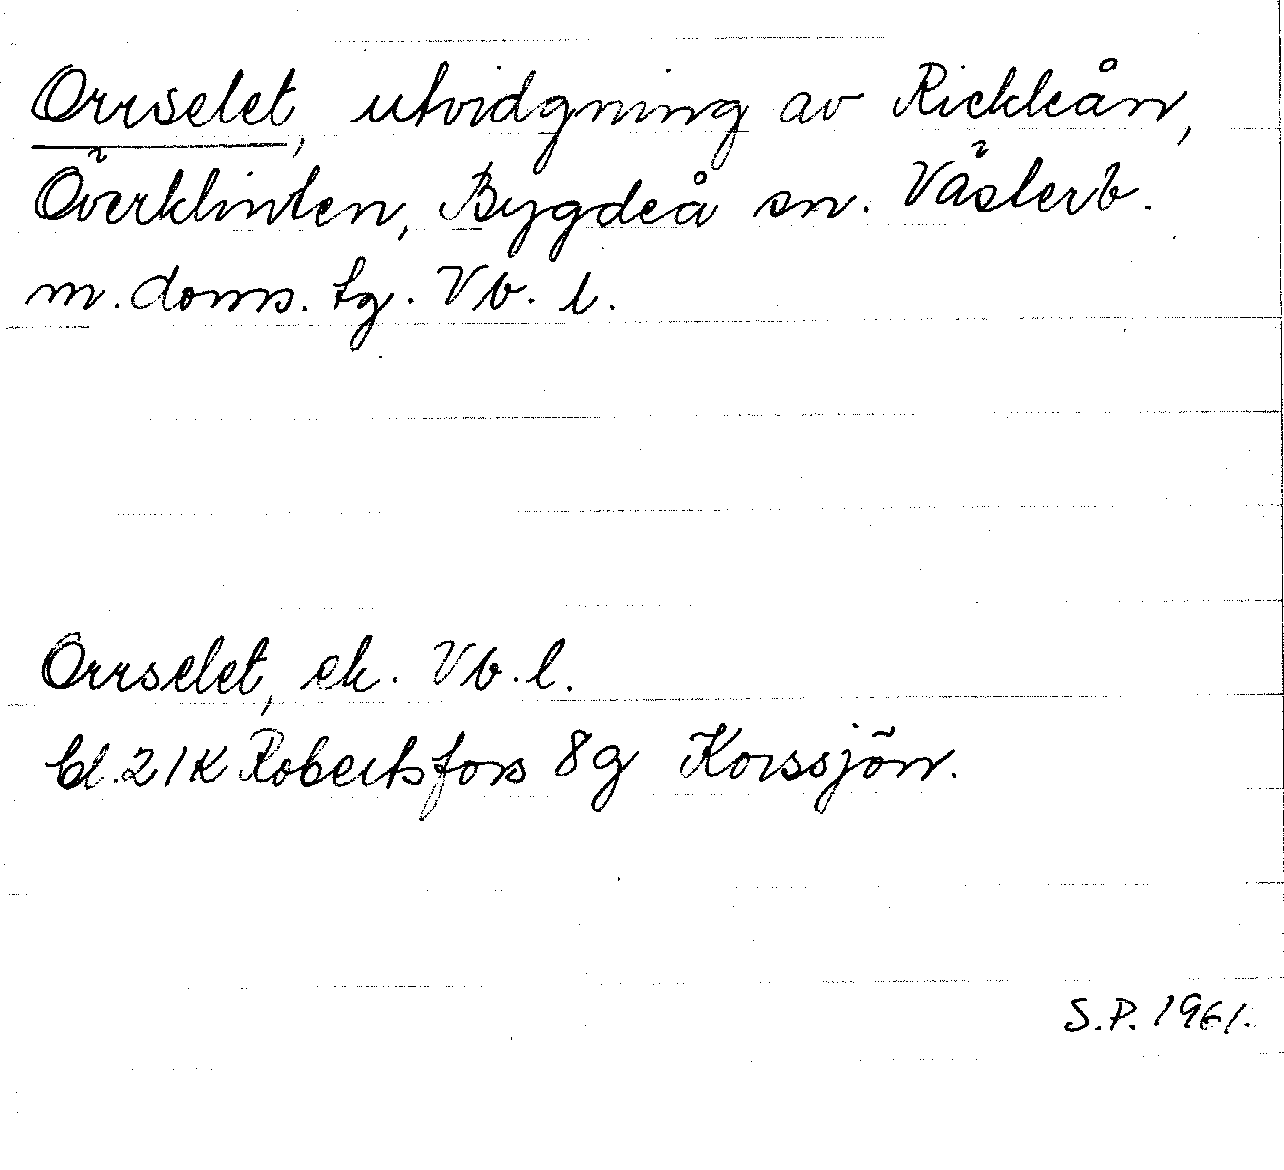 Orrselet, utvidgning av Rickleån,
Överklinten, Bygdeå sn. Västerb.
m. doms. tg. Vb. l.
Orrselet, ek. Vb. l.
bl. 21K Robertsfors 8g Korssjön.
S.P. 1961.